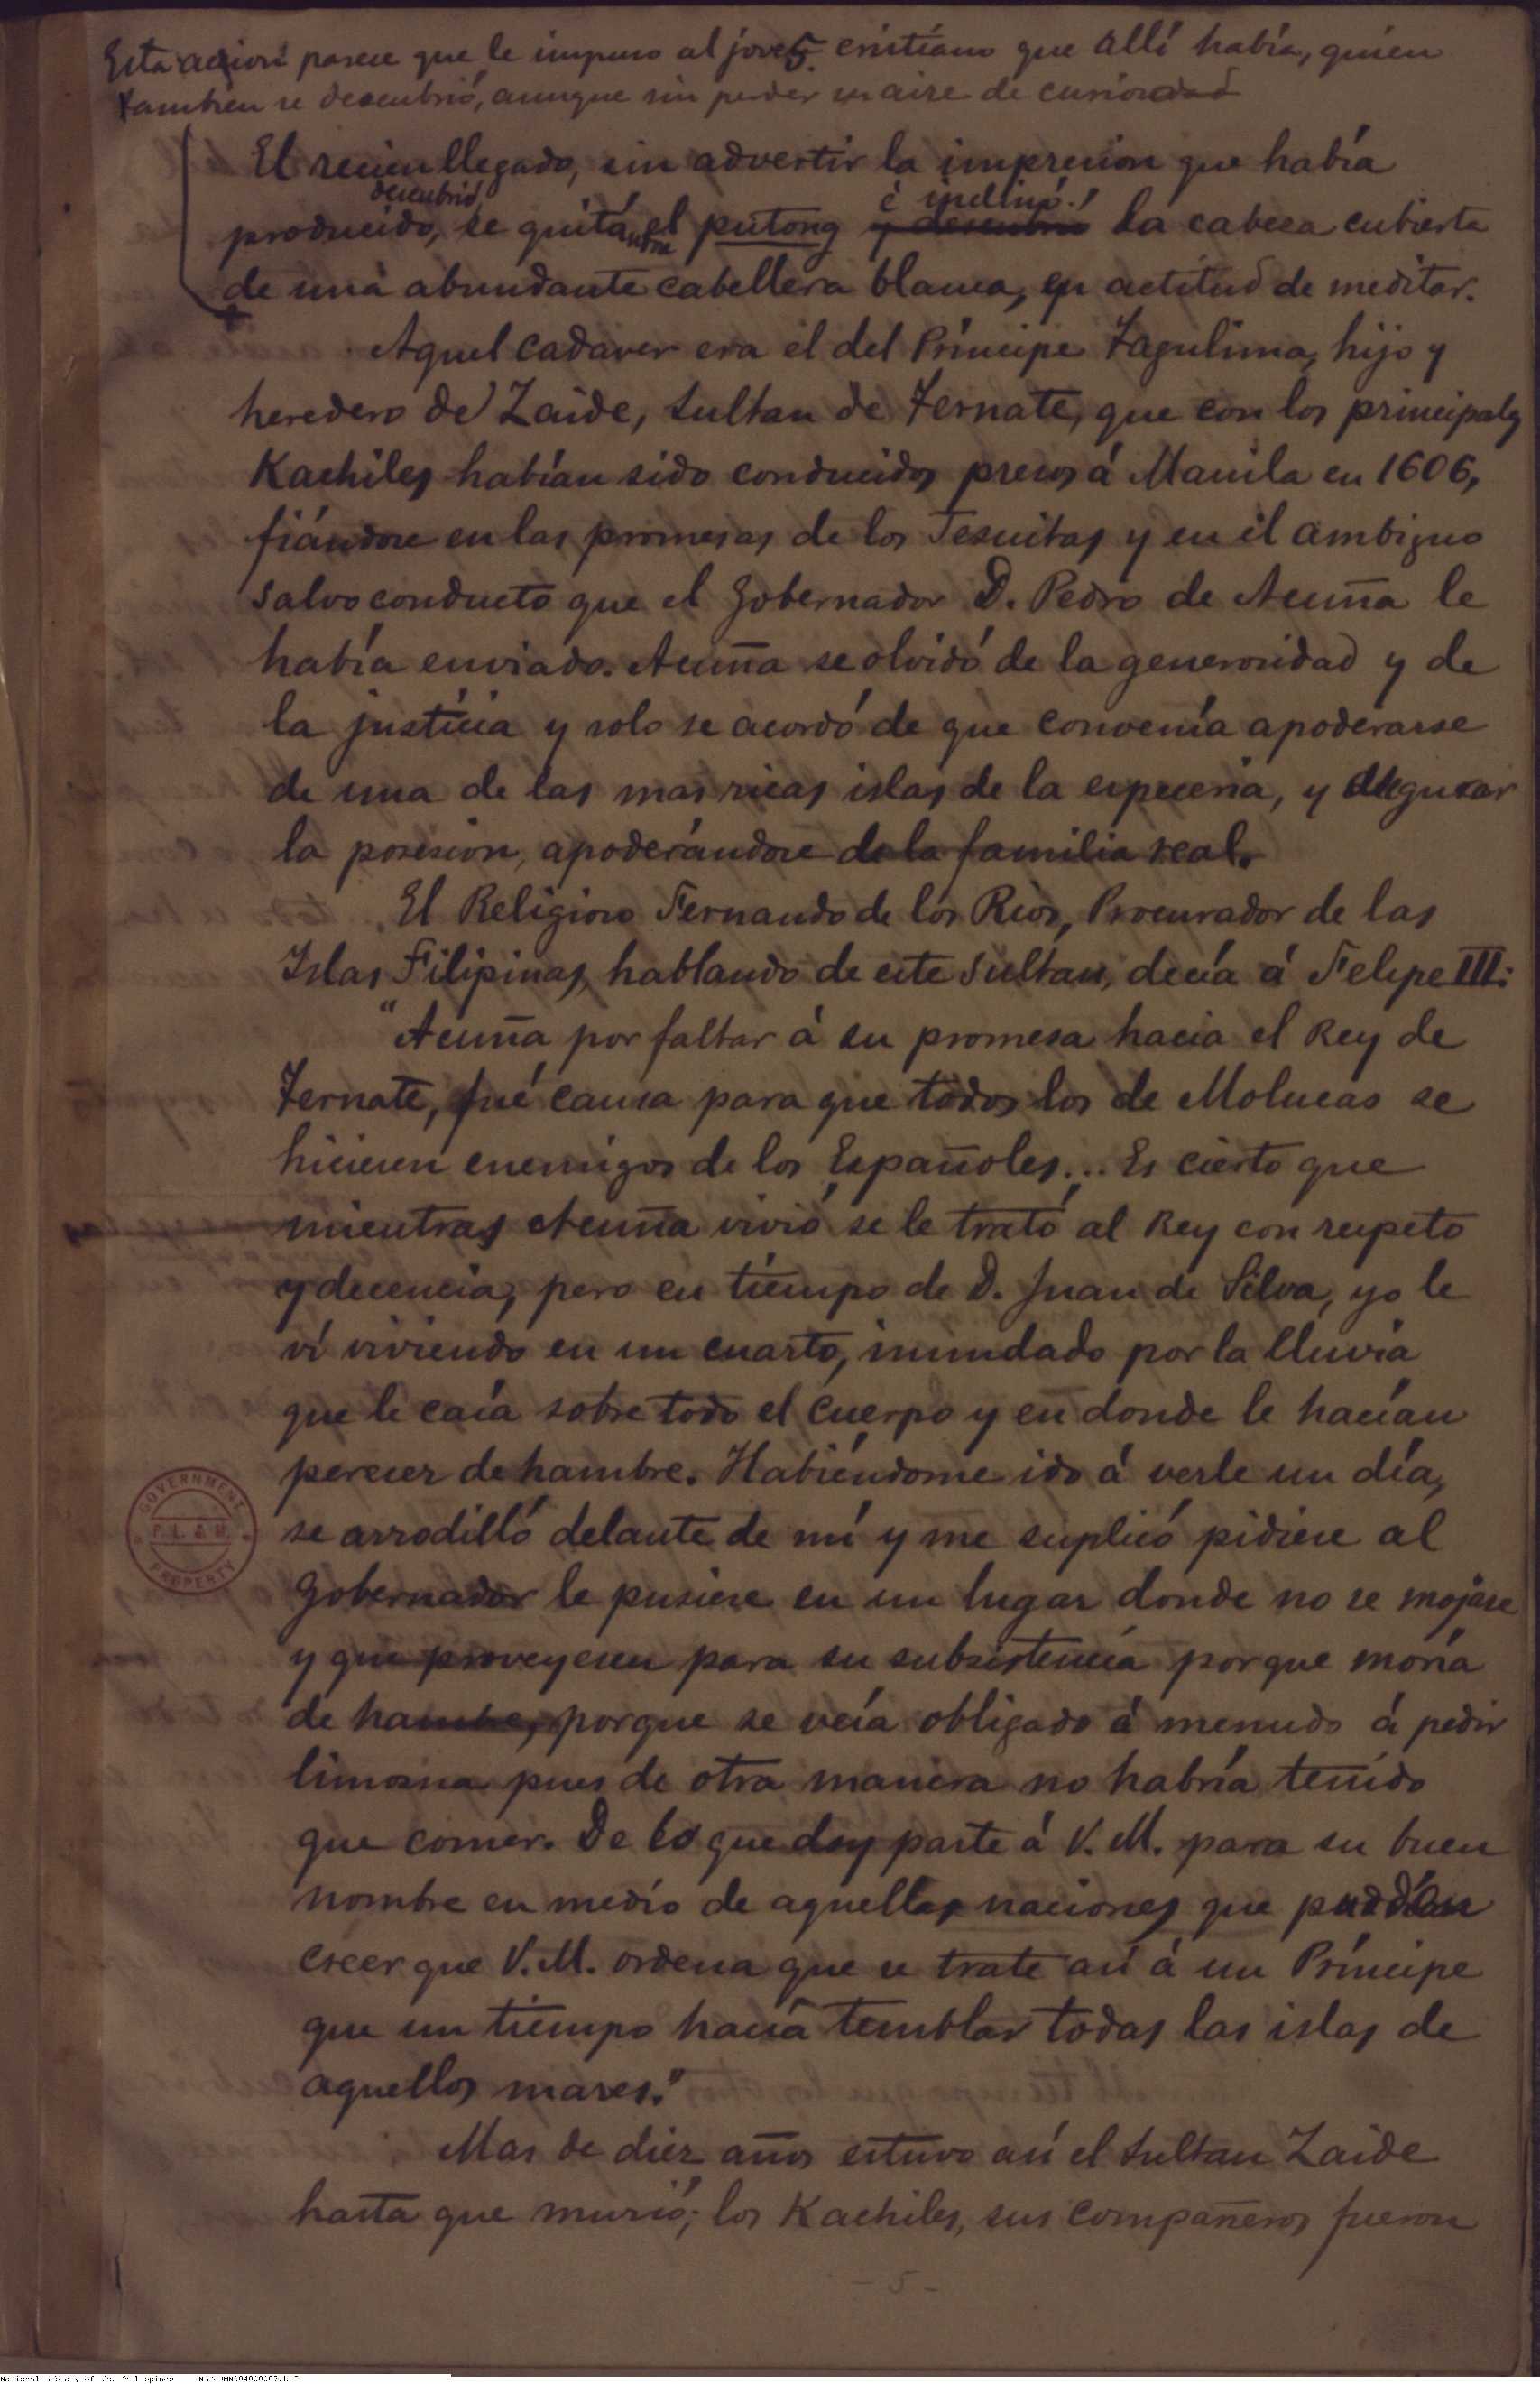 Esta accion parece que le impuso al joven cristiano que allí había, quien
tambien se descubrió, aunque sin perder su aire de curiosidad
El recien llegado, sin advertir la impresion que había
descubrió é inclinó
producido, se quitá el putong y descubrió la cabeza cubierta
de una abundante cabellera blanca, en actitud de meditar.
Aquel cadaver era el del Príncipe Tagulima, hijo y
heredero de Zaide, sultan de Ternate, que con los principales
Kachiles habían sido conducidos presos á Manila en 1606,
fiándose en las promesas de los Jesuitas y en el ambiguo
salvoconducto que el Gobernador D. Pedro de Acuña le
había enviado. Acuña se olvidó de la generosidad y de
la justicia y solo se acordó de que convenía apoderarse
de una de las mas ricas islas de la especeria, y asegurar
la posesion, apoderándose de la familia real.
El Religioso Fernando de los Rios, Procurador de las
Islas Filipinas, hablando de este sultan, decía á Felipe III:
"Acuña por faltar á su promesa hacia el Rey de
Ternate, fué causa para que todos los de Molucas se
hiciesen enemigos de los Españoles... Es cierto que
mientras Acuña vivió se le trató al Rey con respeto
y decencia, pero en tiempo de D. Juan de Silva, yo le
ví viviendo en un cuarto, inundado por la lluvia
que le caía sobre todo el cuerpo y en donde le hacían
perecer de hambre. Habiéndome ido á verle un día,
se arrodilló delante de mí y me suplicó pidiese al
Gobernador le pusiese en un lugar donde no se mojase
y que proveyesen para su subsistencia porque moría
de hambre, porque se veía obligado á menudo á pedir
limosna pues de otra manera no habría tenido
que comer. De lo que doy parte á V. M. para su buen
nombre en medio de aquellas naciones que podían
creer que V. M. ordena que se trate así á un Príncipe
que un tiempo hacía temblar todas las islas de
aquellos mares."
Mas de diez años estuvo así el sultan Zaide
hasta que murió; los Kachiles, sus compañeros fueron
- 5 -
GOVERNMENT
P. L. & M.
PROPERTY